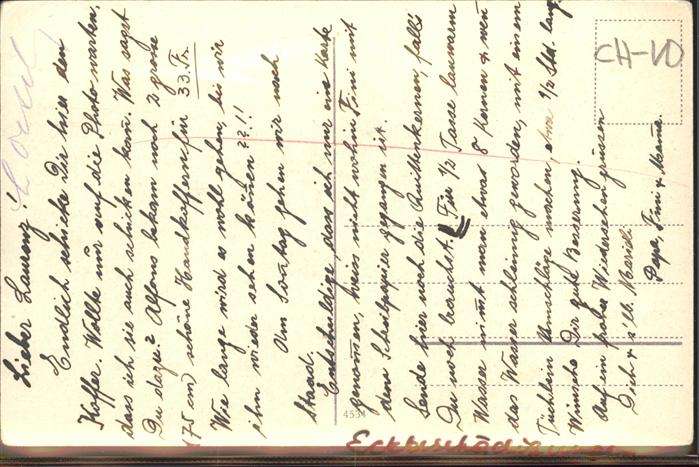 Lieber Laurenz!
Endlich schicke Dir hier den
Koffer. Wollte nur auf die Photo warten,
dass ich sie auch schicken kañ. Was sagst
Du dazu? Alfons bekam noch 2 grosse
(75 cm) schöne Handkoffern für 33. Fr.
Wie lange wird es wohl gehen, bis wir
ihn wieder sehen köñen??!!
Am Soñtag gehen wir nach
Staad.
Entschuldige, dass ich nur eine Karte
genomen, weiss nicht wohin Fini mit
dem Schreibpapier gegangen ist.
Sende hier noch die Quittenkernen, falls
Du noch brauchst. Für 1/2 Tasse lauwarm
Wasser nimt man etwas 8 Kernen & wen
das Wasser schleimig geworden, mit einem
Tüchlein Umschläge machen, etwa 1/2 Std. lang.
Wünsche Dir gute Besserung.
Auf ein frohes Wiedersehen grüssen
Dich & s'lb.
Papa, Fini & Mama.
CH-VD
4534